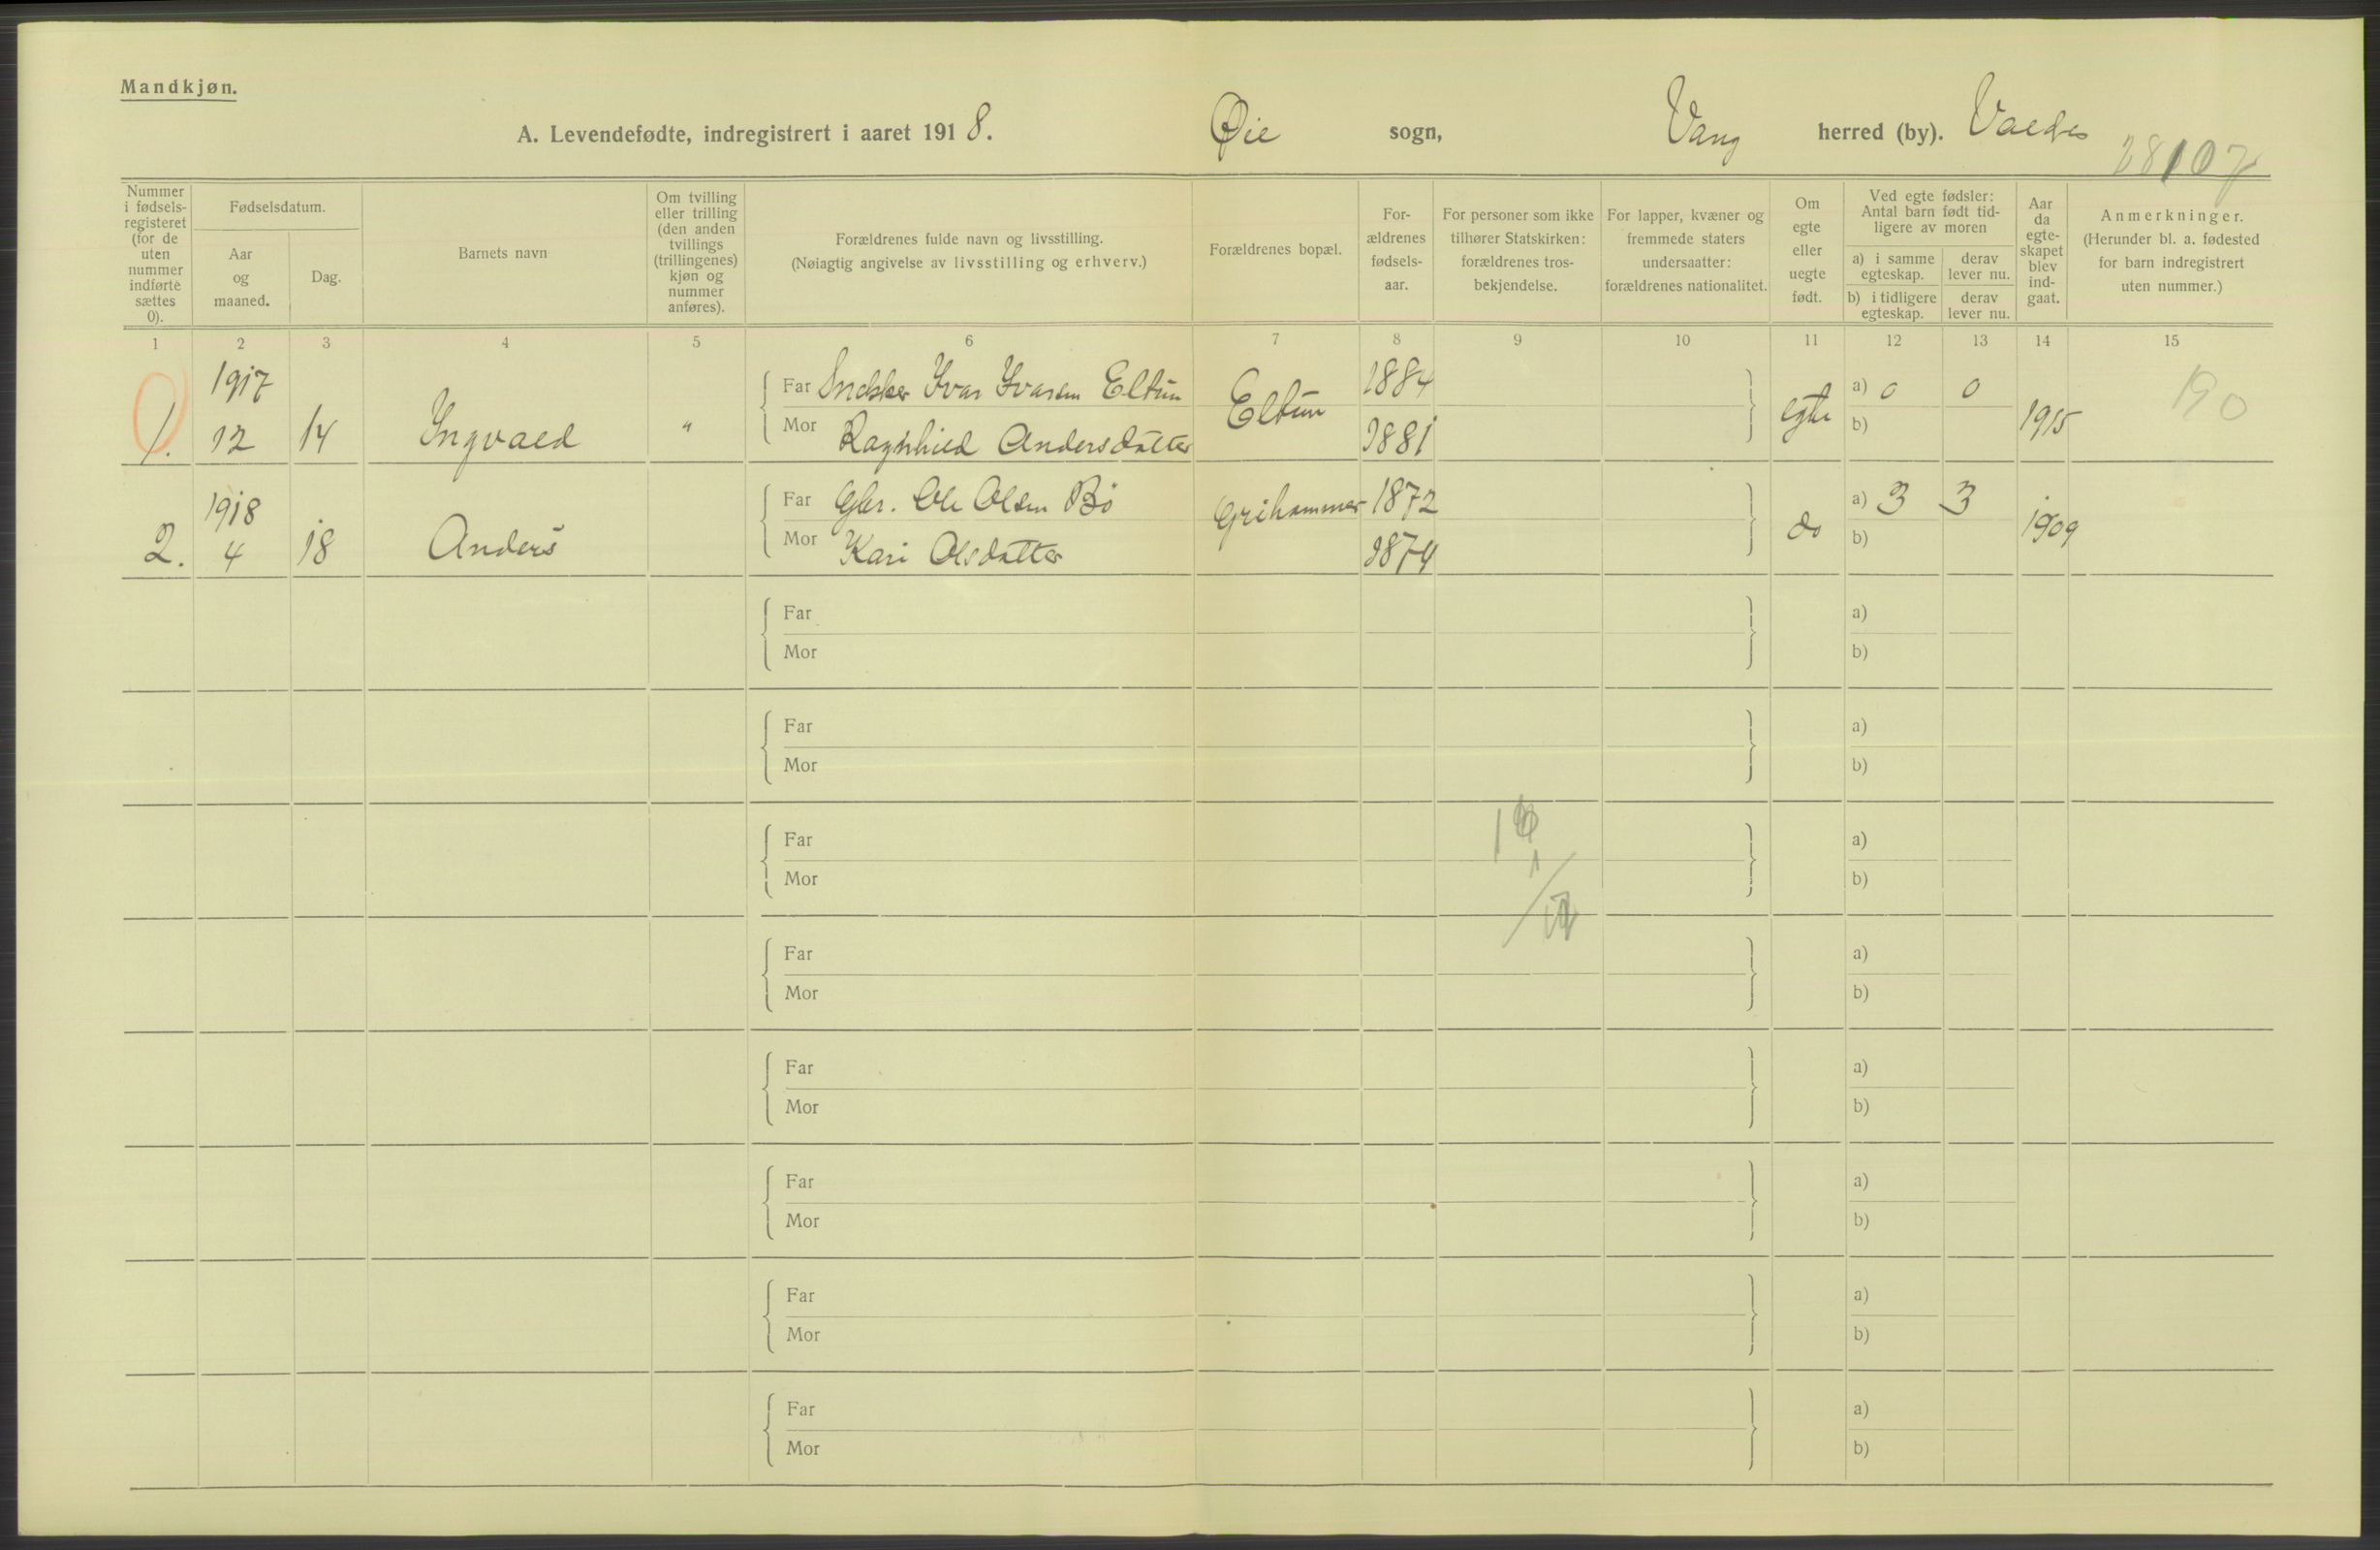 Mandkjøn.
A. Levendefødte, indregistrert i aaret 1918. Øie sogn, Vang herred (by). Valdes
Nummer i fødsels-registeret (for de uten nummer indførte sættes 0).
Fødselsdatum.
Aar og maaned.
Dag.
Barnets navn
Om tvilling eller trilling (den anden tvillings (trillingenes) kjøn og nummer anføres).
Forældrenes fulde navn og livsstilling.
(Nøiagtig angivelse av livsstilling og erhverv.)
Forældrenes bopæl.
For-ældrenes fødsels-aar.
For personer som ikke tilhører Statskirken: forældrenes tros-bekjendelse.
For lapper, kvæner og fremmede staters undersaatter: forældrenes nationalitet.
Om egte eller uegte født.
Ved egte fødsler: Antal barn født tid-ligere av moren
a) i samme egteskap.
derav lever nu.
b) i tidligere egteskap.
derav lever nu.
Aar da egte-skapet blev ind-gaat.
Anmerkninger.
(Herunder bl. a. fødested for barn indregistrert uten nummer.)
1 2 3 4 5 6 7 8 9 10 11 12 13 14 15
1. 1917 12 14 Ingvald "
Far Snekker Ivar Ivarsen Eltun Eltun 1884 egte a) 0 0 1915 190
Mor Ragnhild Andersdatter 1881 b)
2. 1918 4 18 Anders
Far Gbr. Ole Olsen Bö Grihammer 1872 do a) 3 3 1909
Mor Kari Olsdatter 1874 b)
Far a)
Mor b)
Far a)
Mor b)
Far a)
Mor b)
Far a)
Mor b)
Far a)
Mor b)
Far a)
Mor b)
Far a)
Mor b)
Far a)
Mor b)